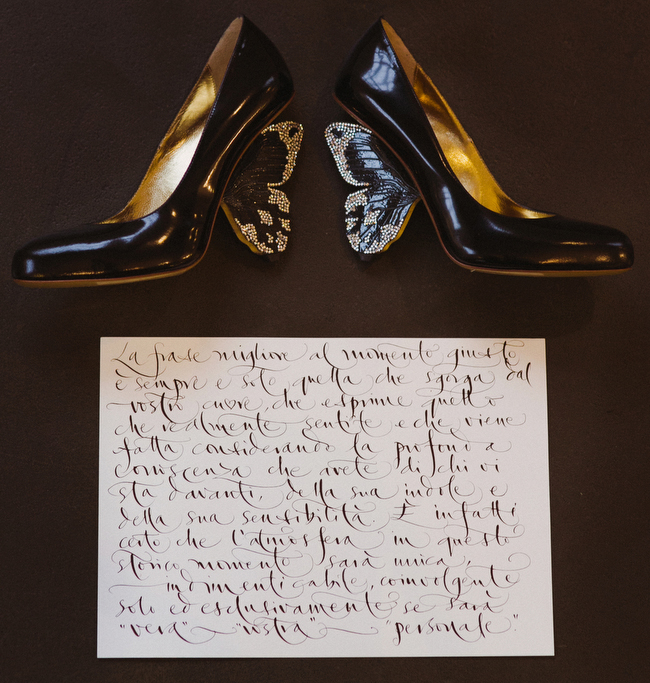 La frase migliore al momento giusto
è sempre e solo quella che sgorga dal
vostro cuore, che esprime quello
che realmente sentite e che viene
fatta considerando la profonda
conoscenza che avete di chi vi
sta davanti, della sua indole e
della sua sensibilità. È infatti
certo che l'atmosfera in questo
storico momento sarà unica,
indimenticabile, coinvolgente
solo ed esclusivamente se sarà
"vera" "vostra" "personale".